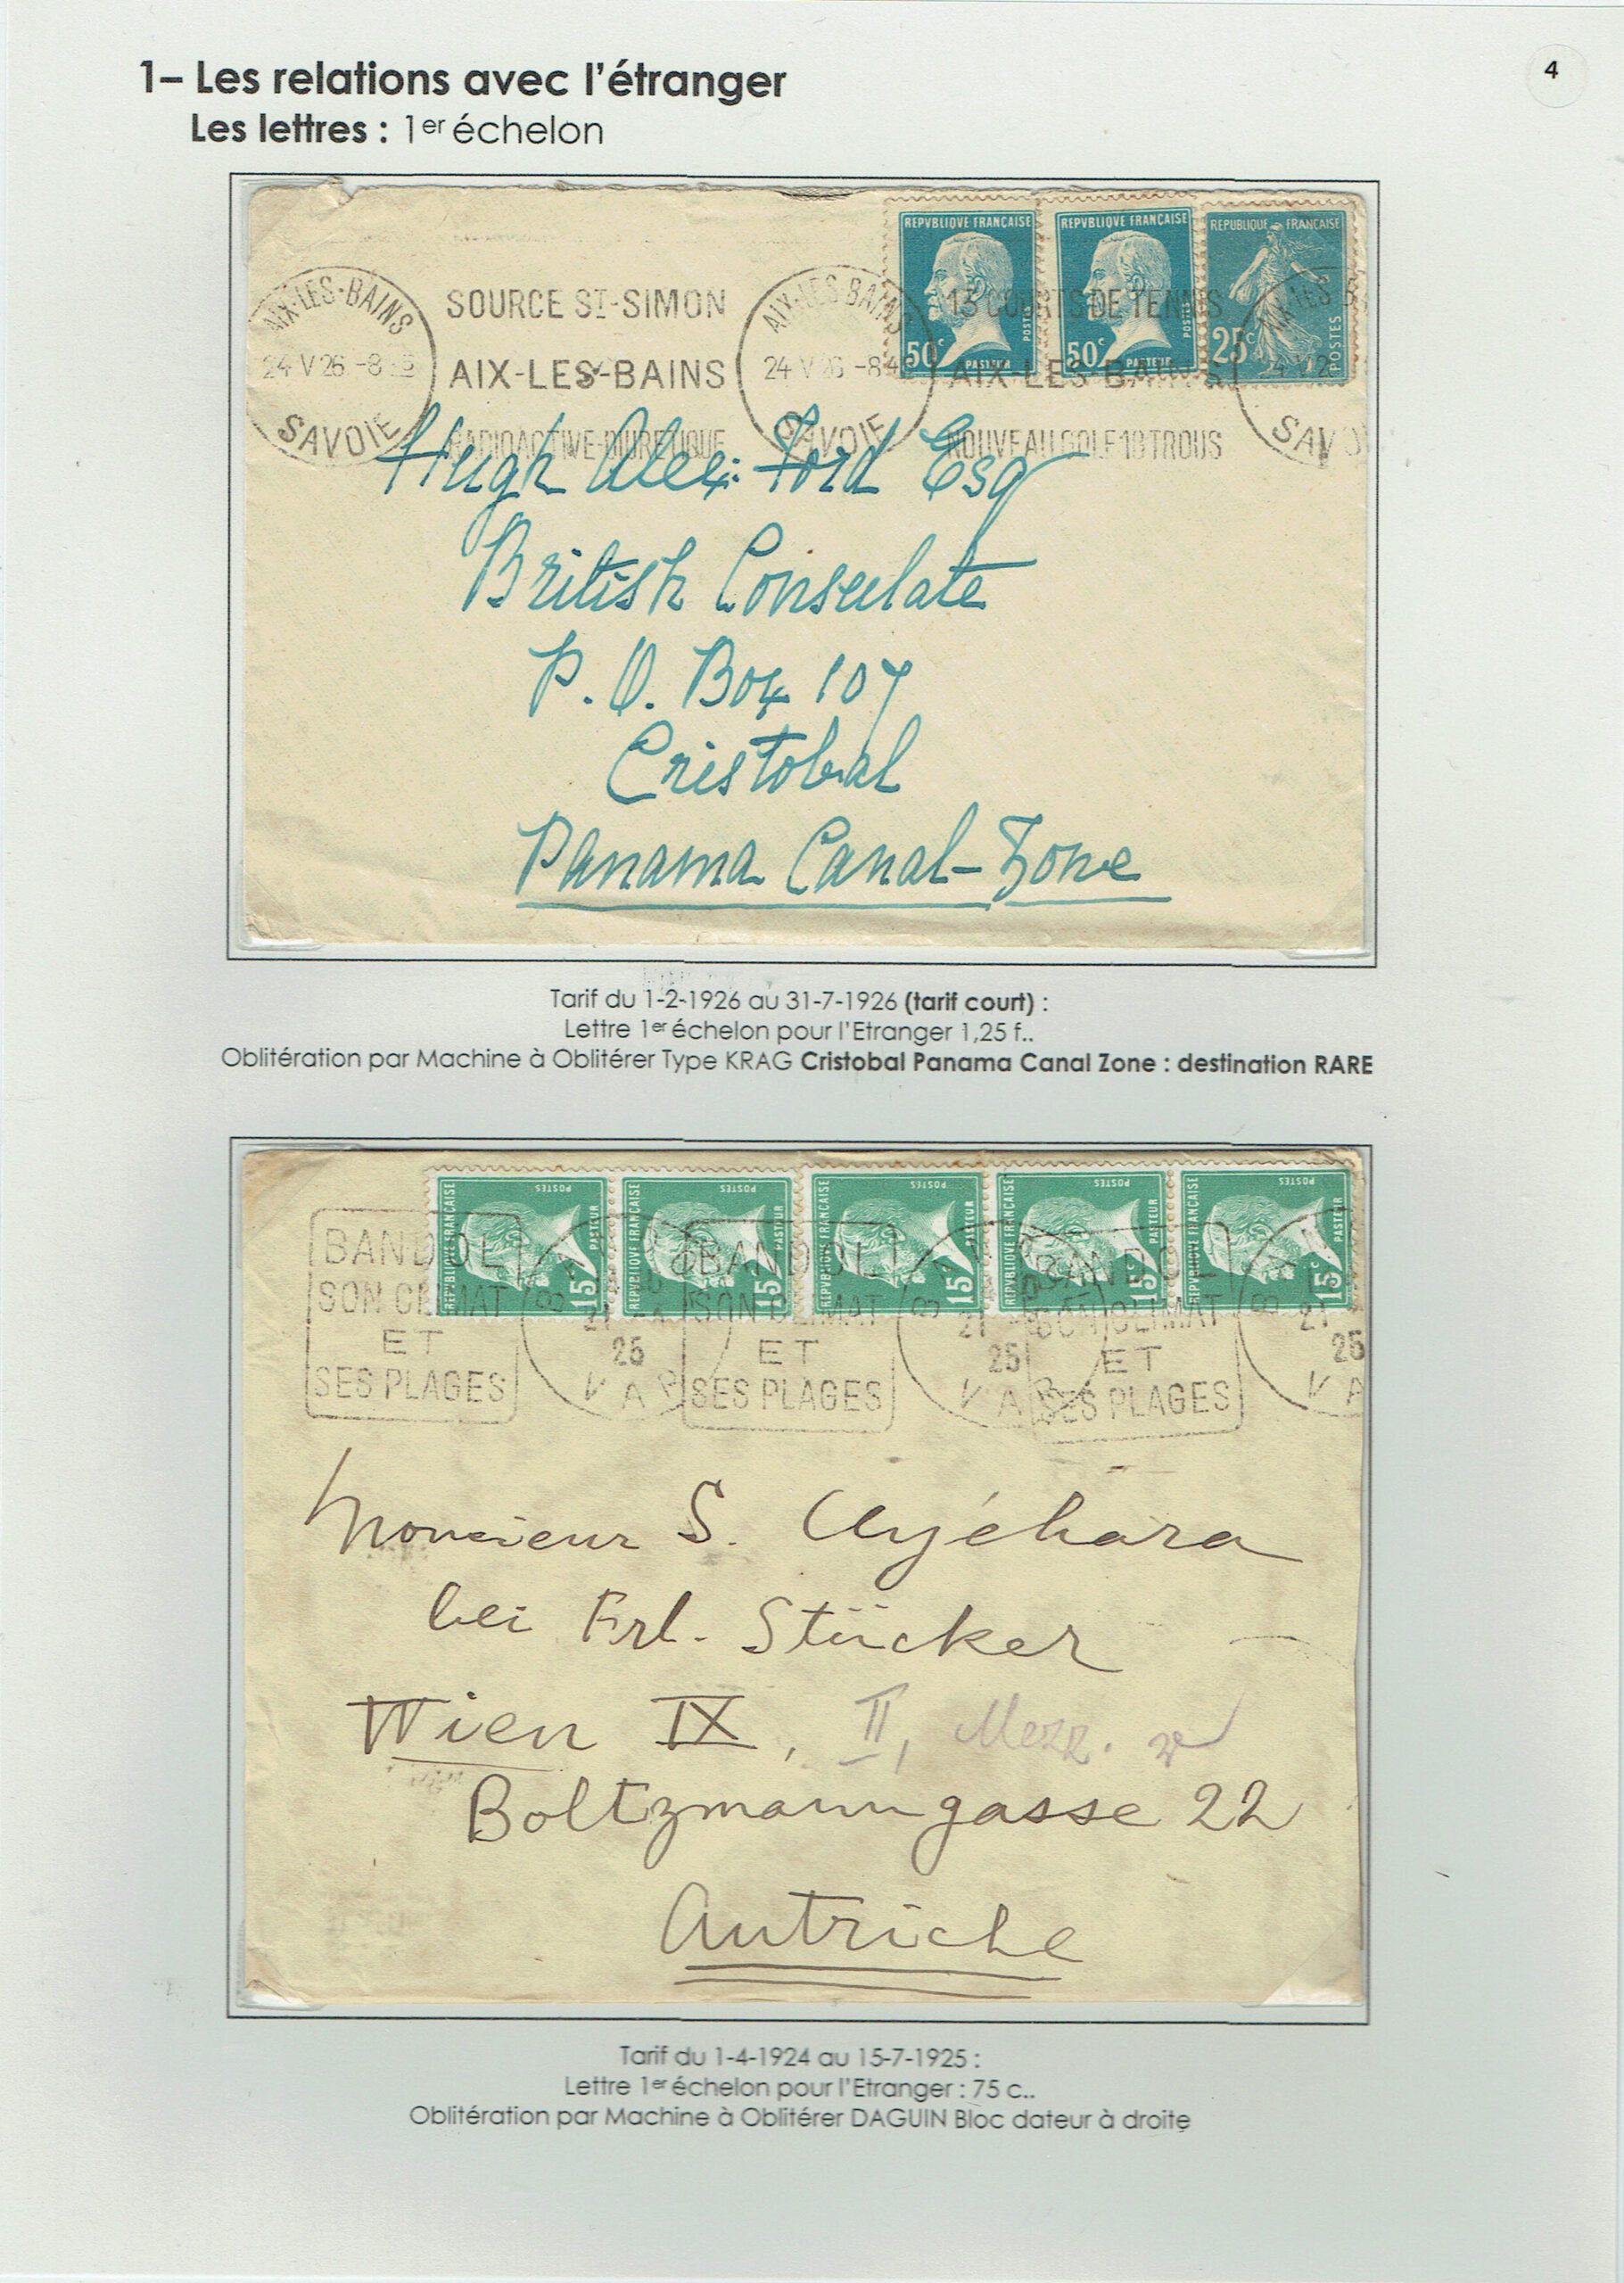 1– Les relations avec l'étranger
4
Les lettres : 1er échelon
REPVBLIQVE FRANÇAISE
50c
POSTES
PASTEUR
REPVBLIQVE FRANÇAISE
50c
POSTES
PASTEUR
REPUBLIQUE FRANÇAISE
25c
POSTES
AIX-LES-BAINS
24 V 26 -8
SAVOIE
SOURCE ST-SIMON
AIX-LES-BAINS
RADIOACTIVE-DIURETIQUE
AIX-LES BAINS
24 V 26 -8
SAVOIE
13 COURTS DE TENNIS
AIX-LES-BAINS
NOUVEAU GOLF 18 TROUS
AIX-LES
SAVO
Hugh Alex: Ford Esq
British Consulate
P.O. Box 107
Cristobal
Panama Canal-Zone
Tarif du 1-2-1926 au 31-7-1926 (tarif court) :
Lettre 1er échelon pour l'Etranger 1,25 f..
Oblitération par Machine à Oblitérer Type KRAG Cristobal Panama Canal Zone : destination RARE
REPVBLIQVE FRANÇAISE
POSTES
PASTEUR
15c
REPVBLIQVE FRANÇAISE
POSTES
PASTEUR
15c
REPVBLIQVE FRANÇAISE
POSTES
PASTEUR
15c
REPVBLIQVE FRANÇAISE
POSTES
PASTEUR
15c
REPVBLIQVE FRANÇAISE
POSTES
PASTEUR
15c
BANDOL
SON CLIMAT
ET
SES PLAGES
21
25
VAR
BANDOL
SON CLIMAT
ET
SES PLAGES
21
25
VAR
BANDOL
SON CLIMAT
ET
SES PLAGES
21
25
VA
Monsieur S. Uyéhara
bei Frl. Stücker
Wien IX, II, Mezz.
Boltzmanngasse 22
Autriche
Tarif du 1-4-1924 au 15-7-1925 :
Lettre 1er échelon pour l'Etranger : 75 c..
Oblitération par Machine à Oblitérer DAGUIN Bloc dateur à droite